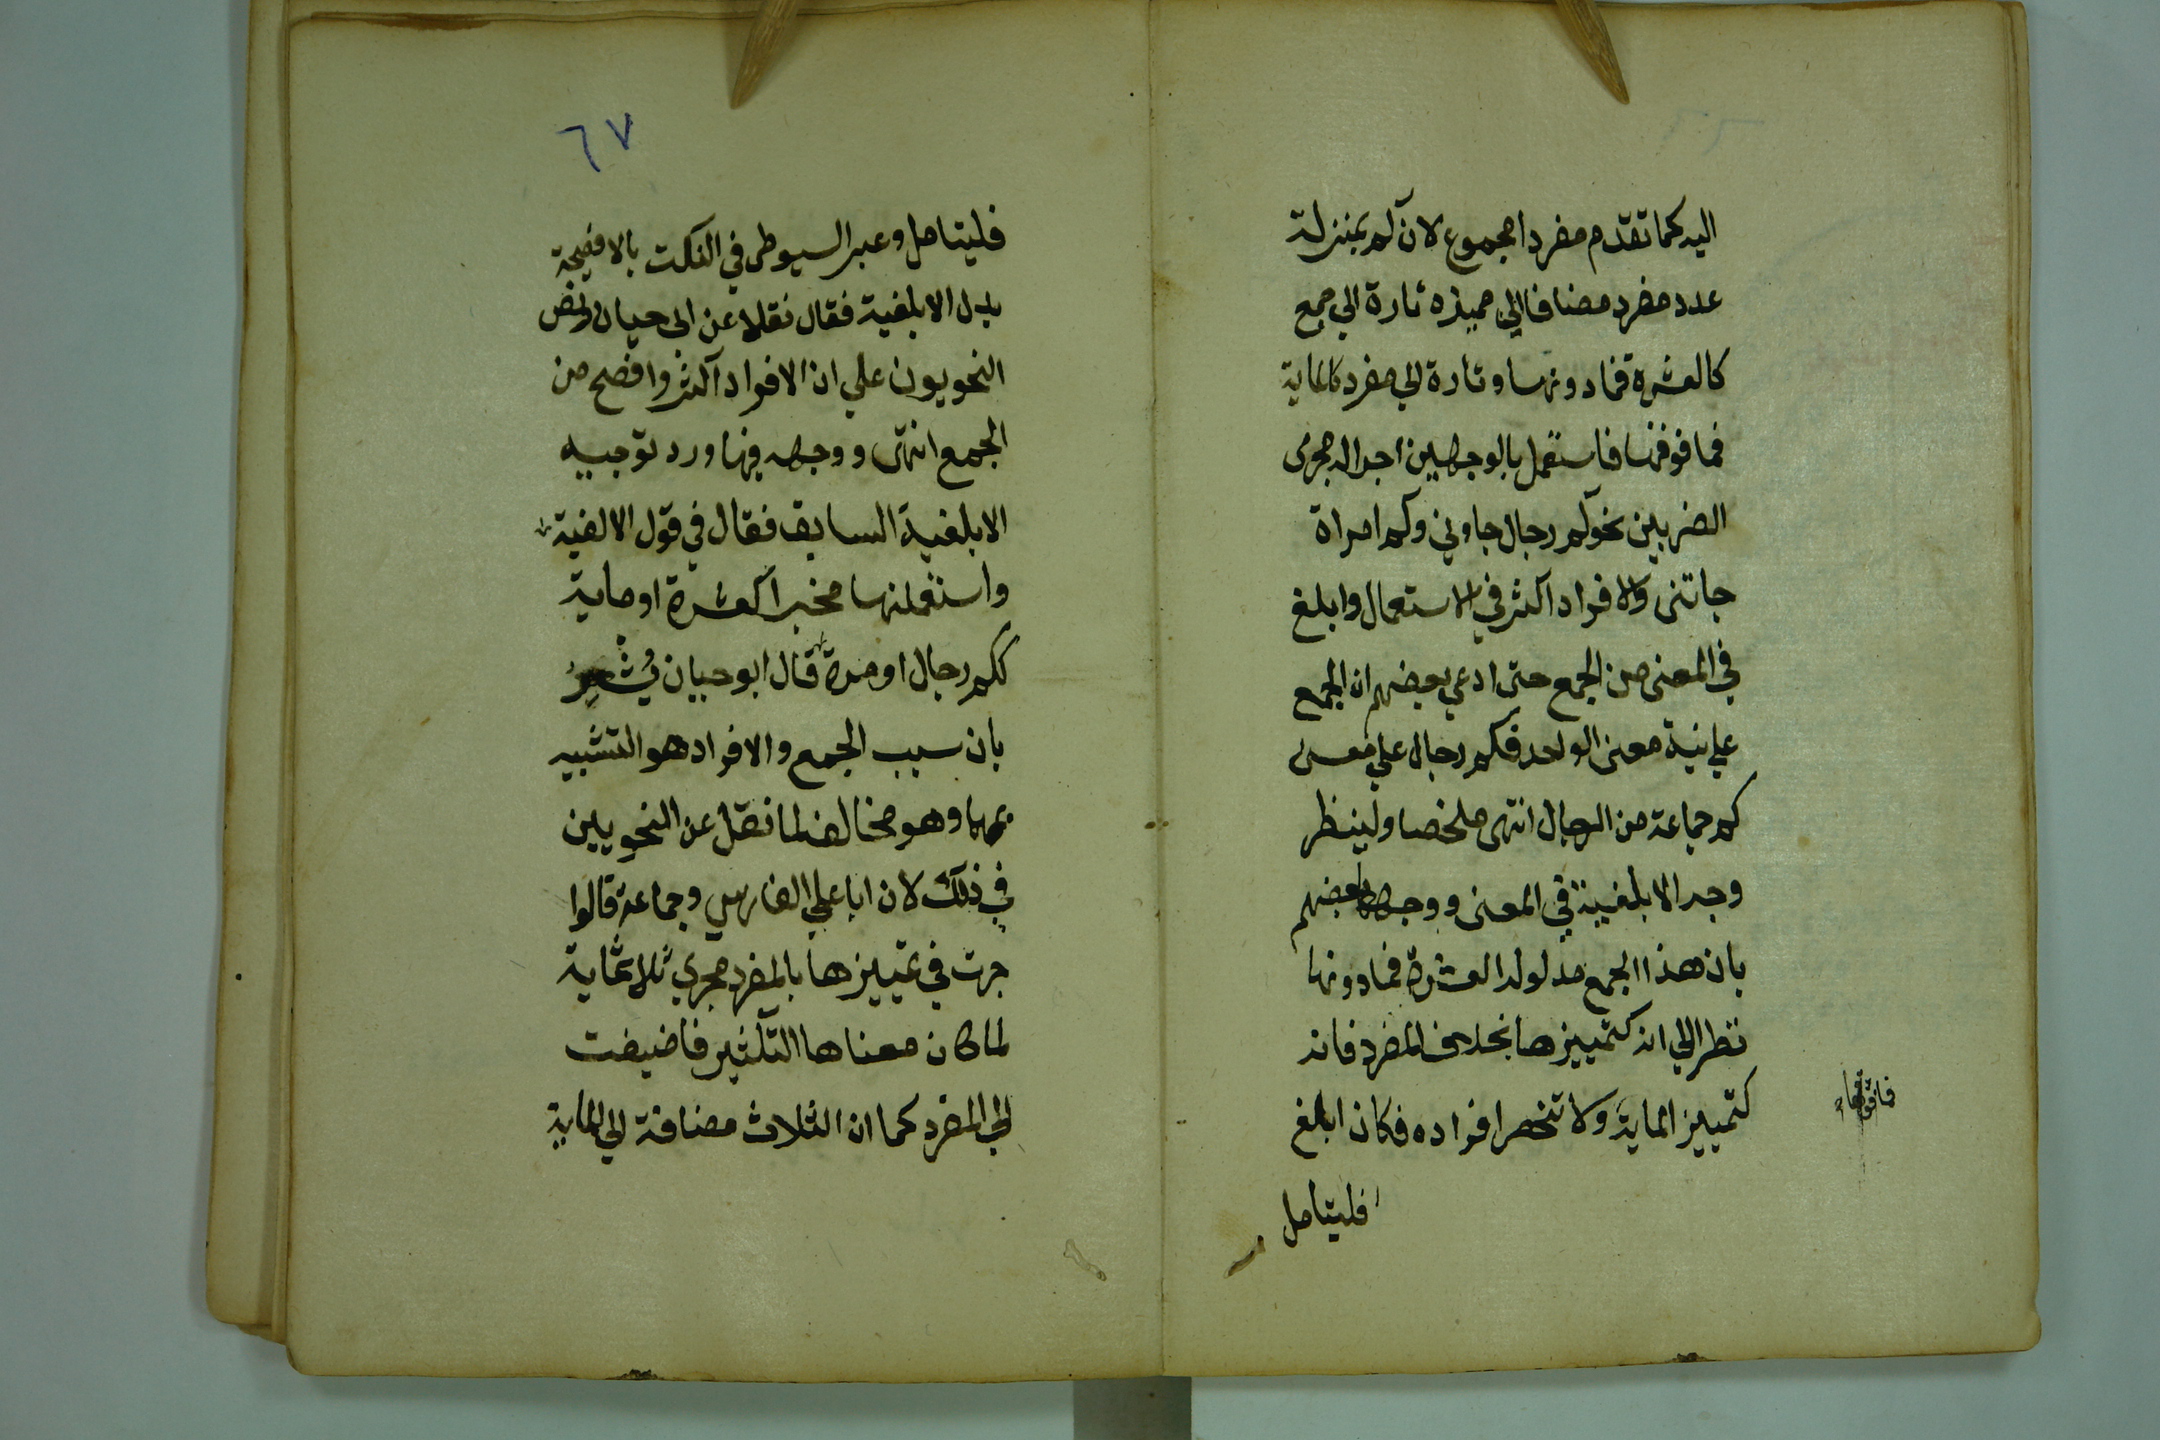 اليه كما تقدم مفردا مجموع لان كم بمنزلة
عدد مفرد مضافا الي مميزه تارة الي جمع
كالعشرة فمادونها وتارة الي مفرد كالماية
فما فوقها فاستعمل بالوجهين اجراله مجرى
الضربين نحو كم رجال جاوني وكم امراة
جاتني والافراد اكثر في الاستعمال وابلغ
في المعنى من الجمع حتى ادعي بعضهم ان الجمع
علي نية معنى الواحد فكم رجال علي معنى
كم جماعة من الرجال انتهى ملخصا ولينظر
وجه الابلغية في المعنى ووجهها بعضهم
بان هذا الجمع مدلوله العشرة فمادونها
نظرا الي انه كتمييزها بخلاف المفرد فانه
كتمييز الماية ولا تنحصر افراده فكان ابلغ
فما فوقها
فليتامل
٦٧
فليتامل وعبر السيوطي في النكت بالافصحية
بدل الابلغية فقال نقلا عن ابي حيان ونص
النحويون علي ان الافراد اكثر وافصح من
الجمع انتهى ووجهه فيها ورد توجيه
الابلغية السابق فقال في قول الالفية
واستعملنها مخبرا كعشرة او ماية
ككم رجال او مرة قال ابو حيان يُشْعِرُ
بان سبب الجمع والافراد هو التشبيه
بهما وهو مخالف لما نقل عن النحويين
في ذلك لان ابا علي الفارسي وجماعة قالوا
جرت في تمييزها بالمفرد مجري ثلاثماية
لما كان معناها التكثير فاضيفت
الي المفرد كما ان الثلاث مضافة الي الماية